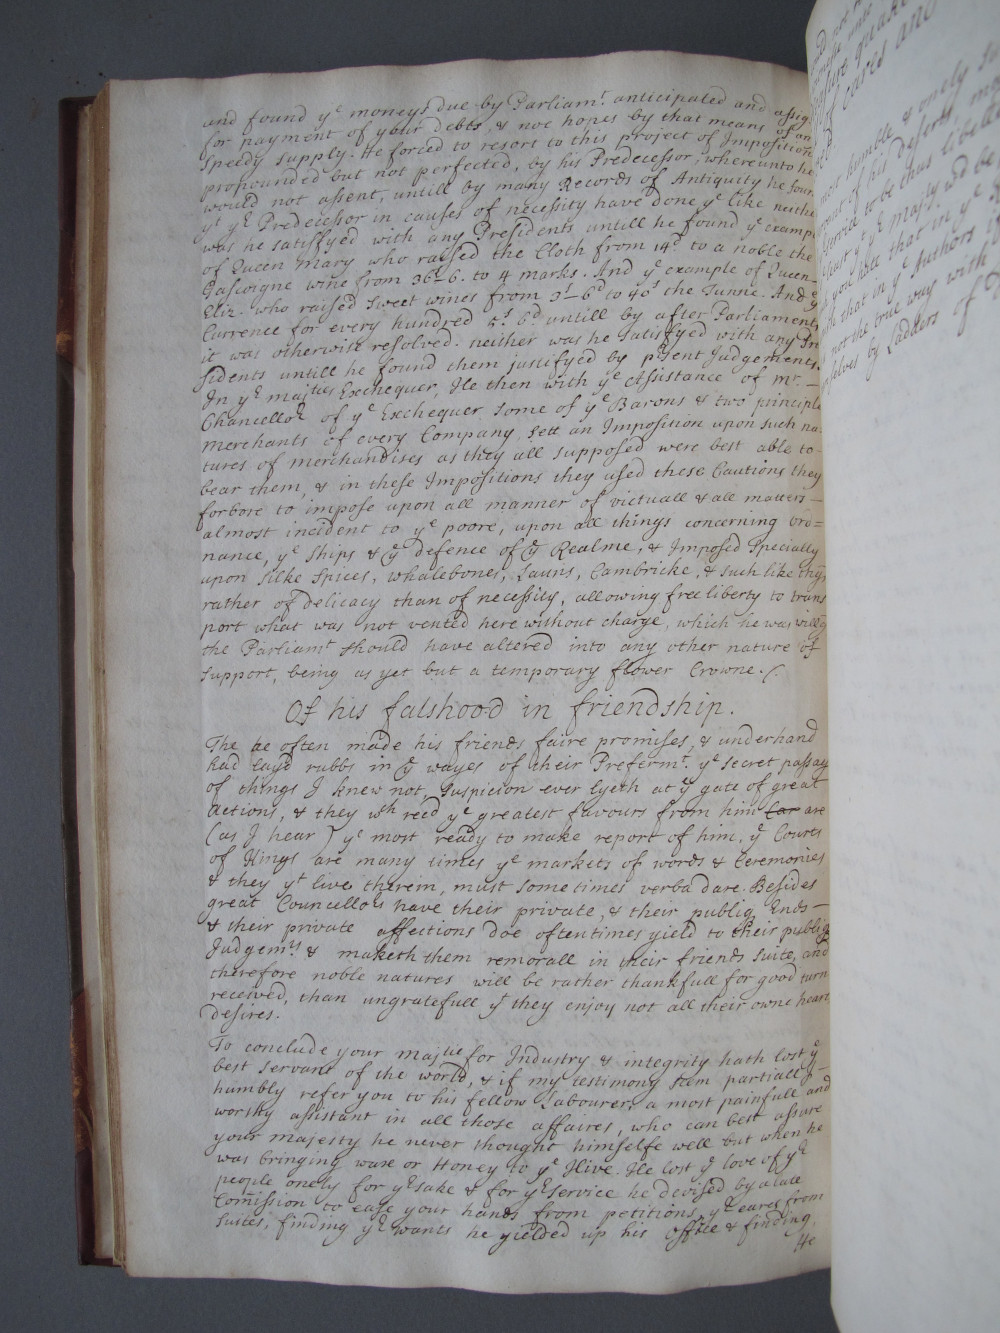 and found yͤ moneys due by Parliamͭ. anticipated and assig
for payment of your debts, & not hopes by that means of an
speedy supply. He forced to resort to this project of Imposition
propounded but not perfected, by his Predecessor, whereunto he
would not assent, untill by many Records of Antiquity he foun
yͭ yͤ Predecessor in causes of necessity have done yͤ like neithe
was he satisfyed with any Presidents untill he found yͤ examp
of Queen Mary who raised the Cloth from 14ᵈ to a noble the
Gascoigne wine from 36ˢ-6. to 4 marks. And yͤ example of Queen
Eliz. who raised Sweet wines from 3ˢ-6ᵈ to 40ˢ the Tunne. And yͤ
Currence for every hundred 5ˢ. 6ᵈ untill by after Parliaments
it was otherwise resolved. neither was he Satisfyed with any Pre
sidents untill he found them justifyed by psent Judgements.
In yͤ majᵗⁱᵉˢ Exchequer, He then with yͤ Assistance of mʳ. —
Chancelloʳ of yͤ Exchequer some of yͤ Barons & two principle
merchants of every Company, sett an Imposition upon such na
tures of merchandises as they all supposed were best able to
bear them, & in these Impositions they used these Cautions they
forbore to impose upon all manner of victuall & all matters —
almost incident to yͤ poore, upon all things concerning Ord=
nance, yͤ ships & yͤ defence of yͤ Realme, & Imposed Specially
upon Silke Spices, whalebones, Launs, Cambricke, & such like thgs
rather of delicacy than of necessity, allowing free liberty to trans
port what was not vented here without charge, which he was willg
the Parliamͭ should have altered into any other nature of
support, being as yet but a temporary flower Crowne./.
Of his falshood in friendship.
The he often made his friends faire promises, & underhand
had layd rubbs in yͤ wayes of their Prefermͭ. yͤ secret passag
of things I knew not, Suspicion ever lyeth at yͤ gate of great
Actions, & they wʰ recd yͤ greatest favours from him are
(as I hear) yͤ most ready to make report of him, yͤ Courts
of Kings are many times yͤ markets of words & Ceremonies
& they yͭ live therein, must some times verba dare. Besides
great Councelloʳˢ have their private, & their publiq Ends —
& their private affections doe oftentimes yield to their publiq
Judgemᵗˢ. & maketh them remorall in their friends suite, and
therefore noble natures will be rather thankfull for good turn
received, than ungratefull yͭ they enjoy not all their owne heart
desires.
To conclude your majᵗⁱᵉ for Industry & integrity hath lost yͤ
best servant of the world, & if my testimony seem partiall I —
humbly refer you to his fellow Labourer, a most painfull and
worthy assistant in all those affaires, who can best assure
your majesty he never thought himselfe well but when he
was bringing wax or Honey to yͤ Hive. He lost yͤ love of yͤ
people onely for yͬ sake & for yͬ Service he devised by a late
Com̃ission to ease your hands from petitions, yͬ eares from
Suites, finding yͬ wants he yielded up his Office & finding
He